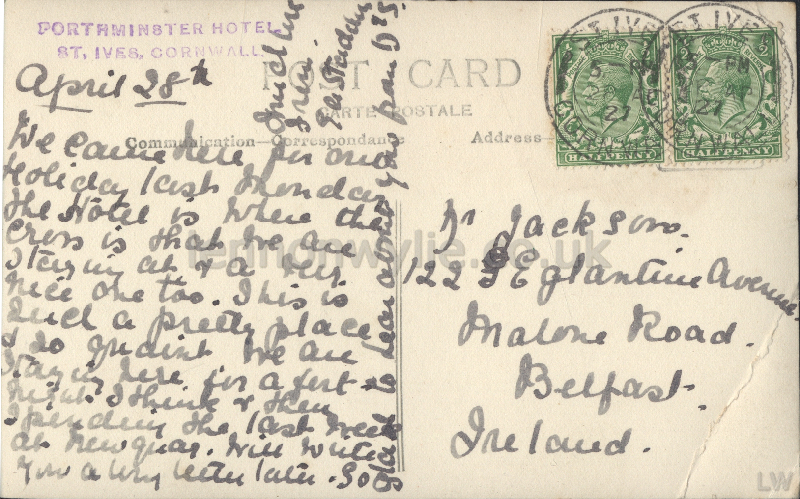 PORTHMINSTER HOTEL
ST, IVES, CORNWALL.
April 28th
POST CARD
CARTE POSTALE
Communication—Correspondance
Address
We came here for our
Holiday last Monday
The Hotel is where the
cross is that we are
staying at & a very
nice one too. This is
such a pretty place
& so quaint We are
staying here for a fort
night I think & then
spending the last week
at Newquay. Will write
you a long letter later. So
glad to hear about your pan
Much love
from
ST. IVES
PM
27
CORNWALL
ST. IVES
PM
27
CORNWALL
HALFPENNY
HALFPENNY
Dr Jackson.
122 Eglantine Avenue
Malone Road.
Belfast.
Ireland.
lennonwylie.co.uk
LW